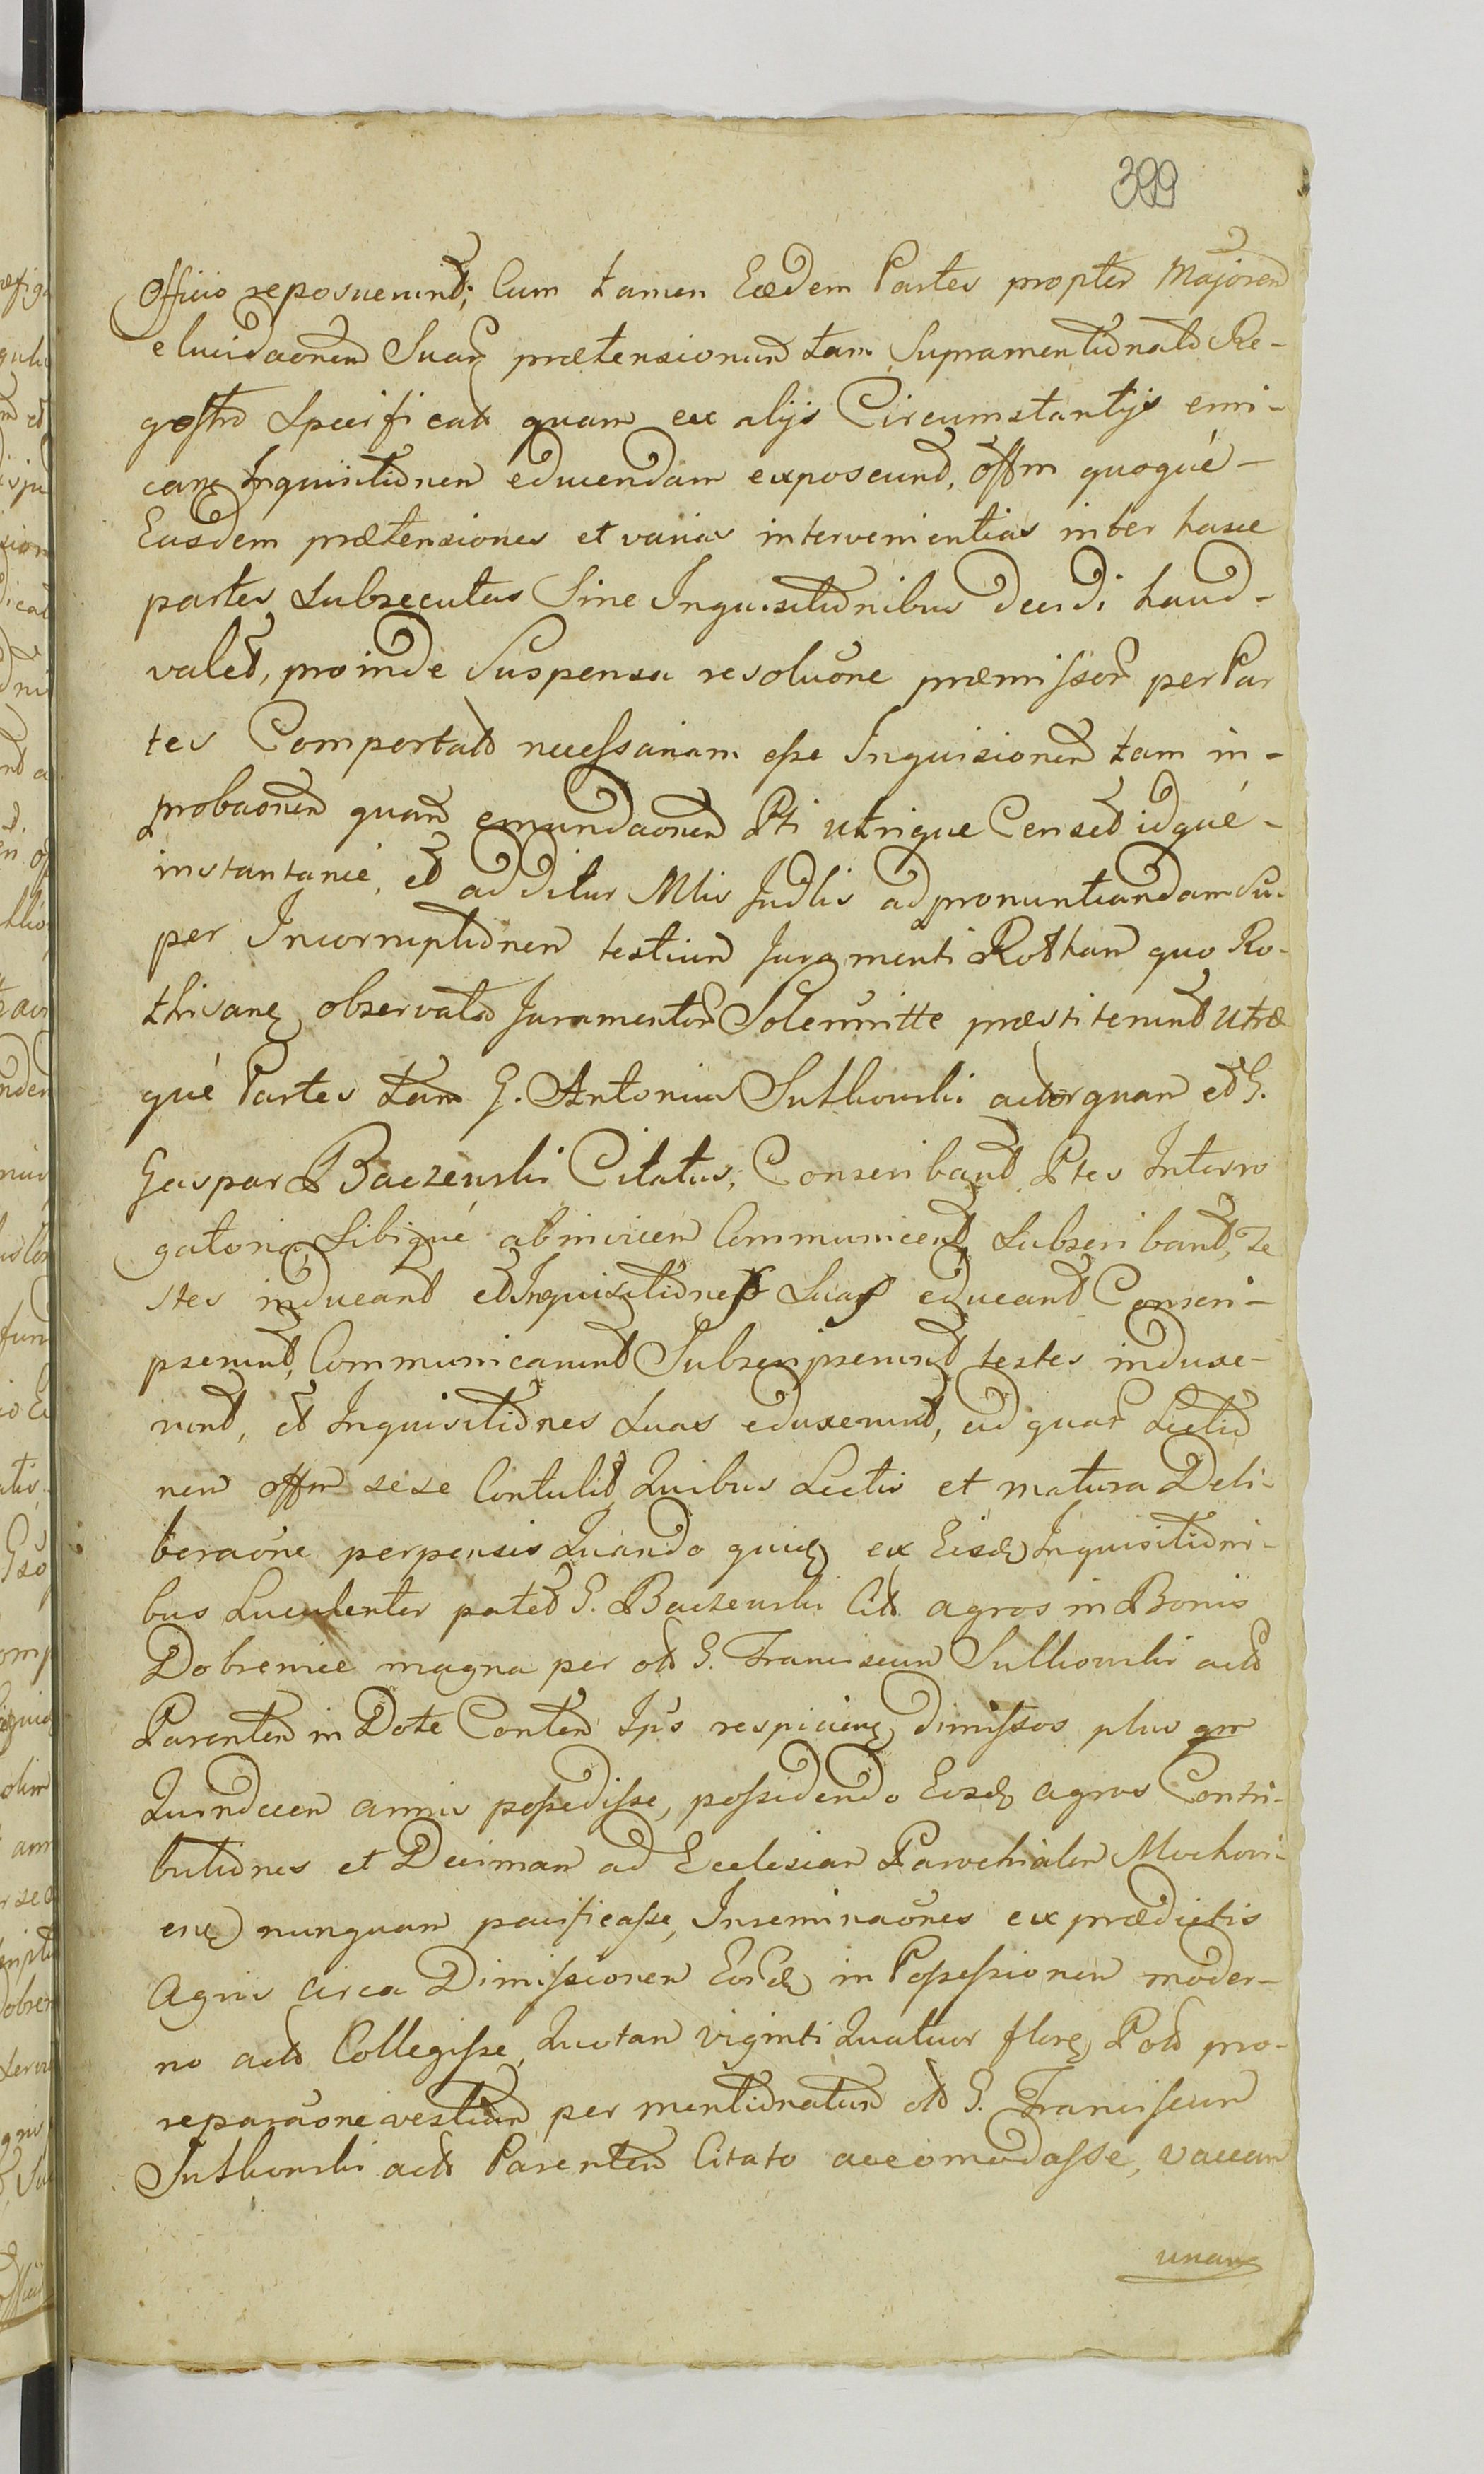 399
Officio reposuerunt; Cum tamen Eædem Partes propter Majorem
elucidaonem Suar prætensionum tam Supramentionato Re-
gestro Specificat quam ex alijs Circumstantijs emi-
can Inquisitionem educendam exposcunt, offm quoqué
Easdem prætensiones et varias intervenientias inter hasce
partes Subsecutas Sine Inquisitionibus decidi haud-
valet, proinde Suspensa resoluõne præmissor per Par
tes Comportat necessariam esse Inquisionem tam in-
probaonem quam emundaonem Pti utrique Censet idqué-
instantanié, et additur Mlis Judlis ad pronuntiandam Su-
per Incorruptionem testium Juramenti Rotham quo Ro-
thisane observato Juramentum Solennitte præstiterunt Utræ
qué Partes tam G. Antonius Sutkowski actor quam et G.
Gaspar Baczewski Citatus, Conscribant Ptes Interro
gatoria Sibiqué abinvicem Communicent, Subscribant, Te
stes inducant et Inquisitiones Suas educant Conscri-
pserunt, Communicarunt Subscripserunt testes induxe-
runt, et Inquisitiones Suas eduxerunt, ad quar Lectio
nem offm sese Contulit, Quibus Lectis et matura Deli-
beraõne perpensis Quando quid ex Eisd Inquisitioni-
bus Luculenter patet G. Baczewski Cit agros in Bonis
Dobrenice magna per ol G. Franciscum Sutkowski act
Parentem in Dote Conten Ips respicien dimissos plus qm
Quindecem annis possedisse, possidendo Eosd agros Contri-
butiones et Decimam ad Ecclesiam Parochialem Mochovi-
en nunquam pacificasse, Inseminaõnes ex prædictis
Agris circa Dimissionem Eord in Possessionem moder-
no acto Collegisse, Quotam viginti Quatuor floren Pol pro-
reparaõne vestium per mentionatum ol G. Franciscum
Sutkowski acto Parentem Citato accomodasse, vaccam
unam